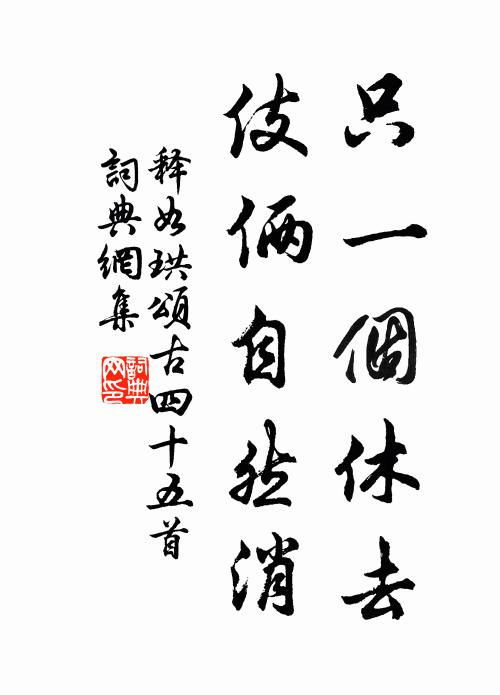 只一個休去
伎倆自然消
释如珙頌古四十五首
詞典網集
詞典网印